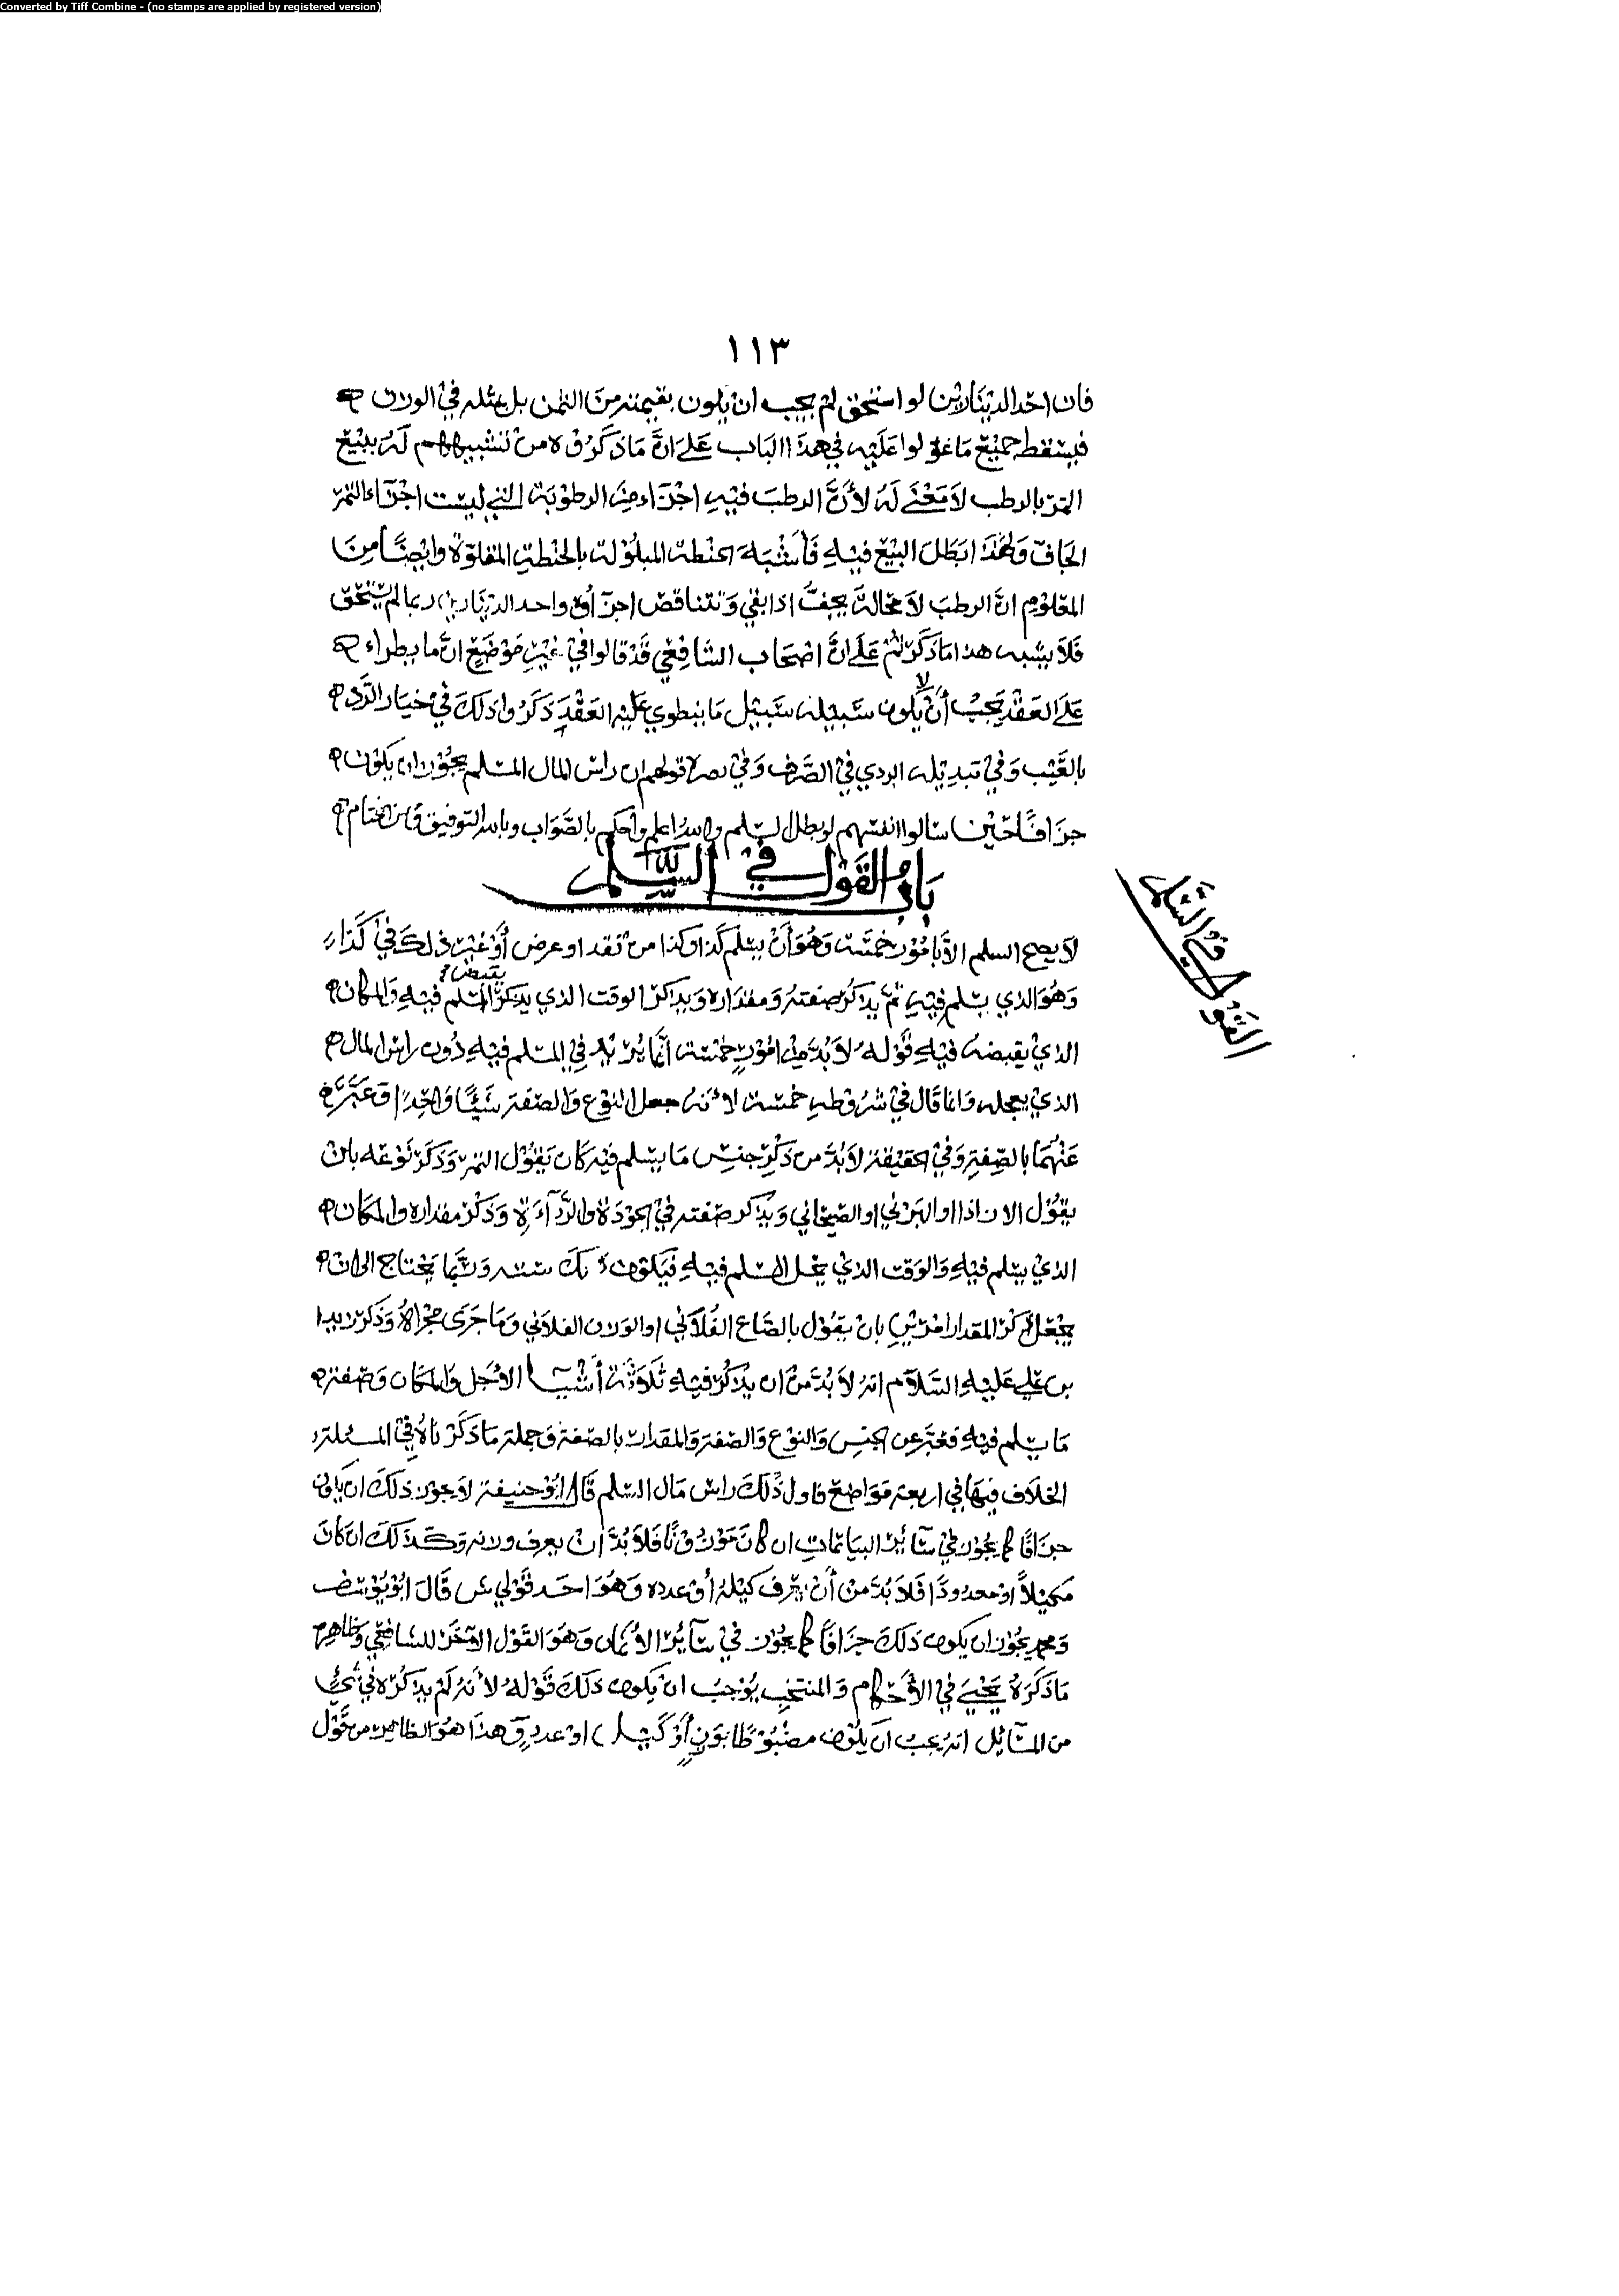 Converted by Tiff Combine - (no stamps are applied by registered version)
١١٣
فان احد الدينارين لو استحق لم يجب ان يكون بقيمته من الثمن بل بمثله في الوزن
فيسقط جميع ما عولوا عليه في هذا الباب على انَّ ما ذكروه من تشبيههم له ببيع
التمر بالرطب لا معنى له لأنَّ الرطب فيه اجزاء من الرطوبة التي ليست اجزاء التمر
الجافّ ولهذا ابطل البيع فيه فأشبه الحنطة المبلولة بالحنطة المقلوّة وايضًا من
المعلوم انَّ الرطب لا محالة يجفّ اذا بقي وتتناقص اجزآؤه واحد الدينارين ربما لم يستحق
فلا يشبه هذا ما ذكرتم على انَّ اصحاب الشافعي قد قالوا في غير موضع انَّ ما يطراء
على العقد يجب أن لا يكون سبيله سبيل ما ينطوي عليه العقد ذكروا ذلك في خيار الرّد
بالعَيب وفي تبديله الردي في الصّرف وفي قولهم ان راس المال المسلم يجوز ان يكون
جزافًا حين سالوا انفسهم لو بطل السلم والله اعلم وأحكم بالصَّواب وبالله التوفيق
باب القول في السلم
القول في السلم
لا يصح السلم الاَّ بامور خمسة وهو أن يسلم كذا وكذا من نقد او عرض أو غير ذلك في كذا
وهو الذي يسلم فيه ثم يذكر صفته ومقداره ويذكر الوقت الذي يقبض المسلم فيه والمكان
الذي يقبضه فيه قوله لا بدَّ من امور خمسة انّما يريد في المسلم فيه دون راس المال
الذي يعجله وانما قال في شروطه خمسة لانه جعل النوع والصفة شيئًا واحدًا وعبَّر
عنهما بالصفة وفي الحقيقة لا بدَّ من ذكر جنس ما يسلم فيه كان يقول التمر وذكر نوعه بان
يقول الازاذ او البرني او الصيحاني ويذكر صفته في الجودة والردآءة وذكر مقداره والمكان
الذي يسلم فيه والوقت الذي يحل المسلم فيه فيكون ذلك ستة وربّما يحتاج الى ان
يجعل ذكر المقدار امرين بان يقول بالصّاع الفلاني او الوزن الفلاني وما جرى مجراه وذكر زيد
بن علي عليه السلام انه لا بدَّ من ان يذكر فيه ثلاثة أشيآ الاجل والمكان وصفة
ما يسلم فيه فعبّر عن الجنس والنوع والصفة والمقدار بالصّفة وجملة ما ذكرناه في المسئلة
الخلاف فيها في اربعة مواضع فاول ذلك راس مال السلم قال ابو حنيفة لا يجوز ذلك ان يكون
جزافًا كما يجوز في سآئر البياعات ان كان موزونًا فلا بدَّ ان يعرف وزنه وكذلك ان كان
مكيلاً او معدودًا فلا بدَّ من أن يعرف كيله أو عدده وهو احد قولي ش قال ابو يوسف
ومحمد يجوز ان يكون ذلك جزافًا كما يجوز في سآئر الاثمان وهو القول الآخر للشافعي وظاهر
ما ذكره يحيى في الأحكام والمنتخب يوجب ان يكون ذلك قوله لأنه لم يذكره في شيء
من المسآئل انه يجب ان يكون مضبوطًا بوزن أو كيل او عدد وهذا هو الظاهر من قول